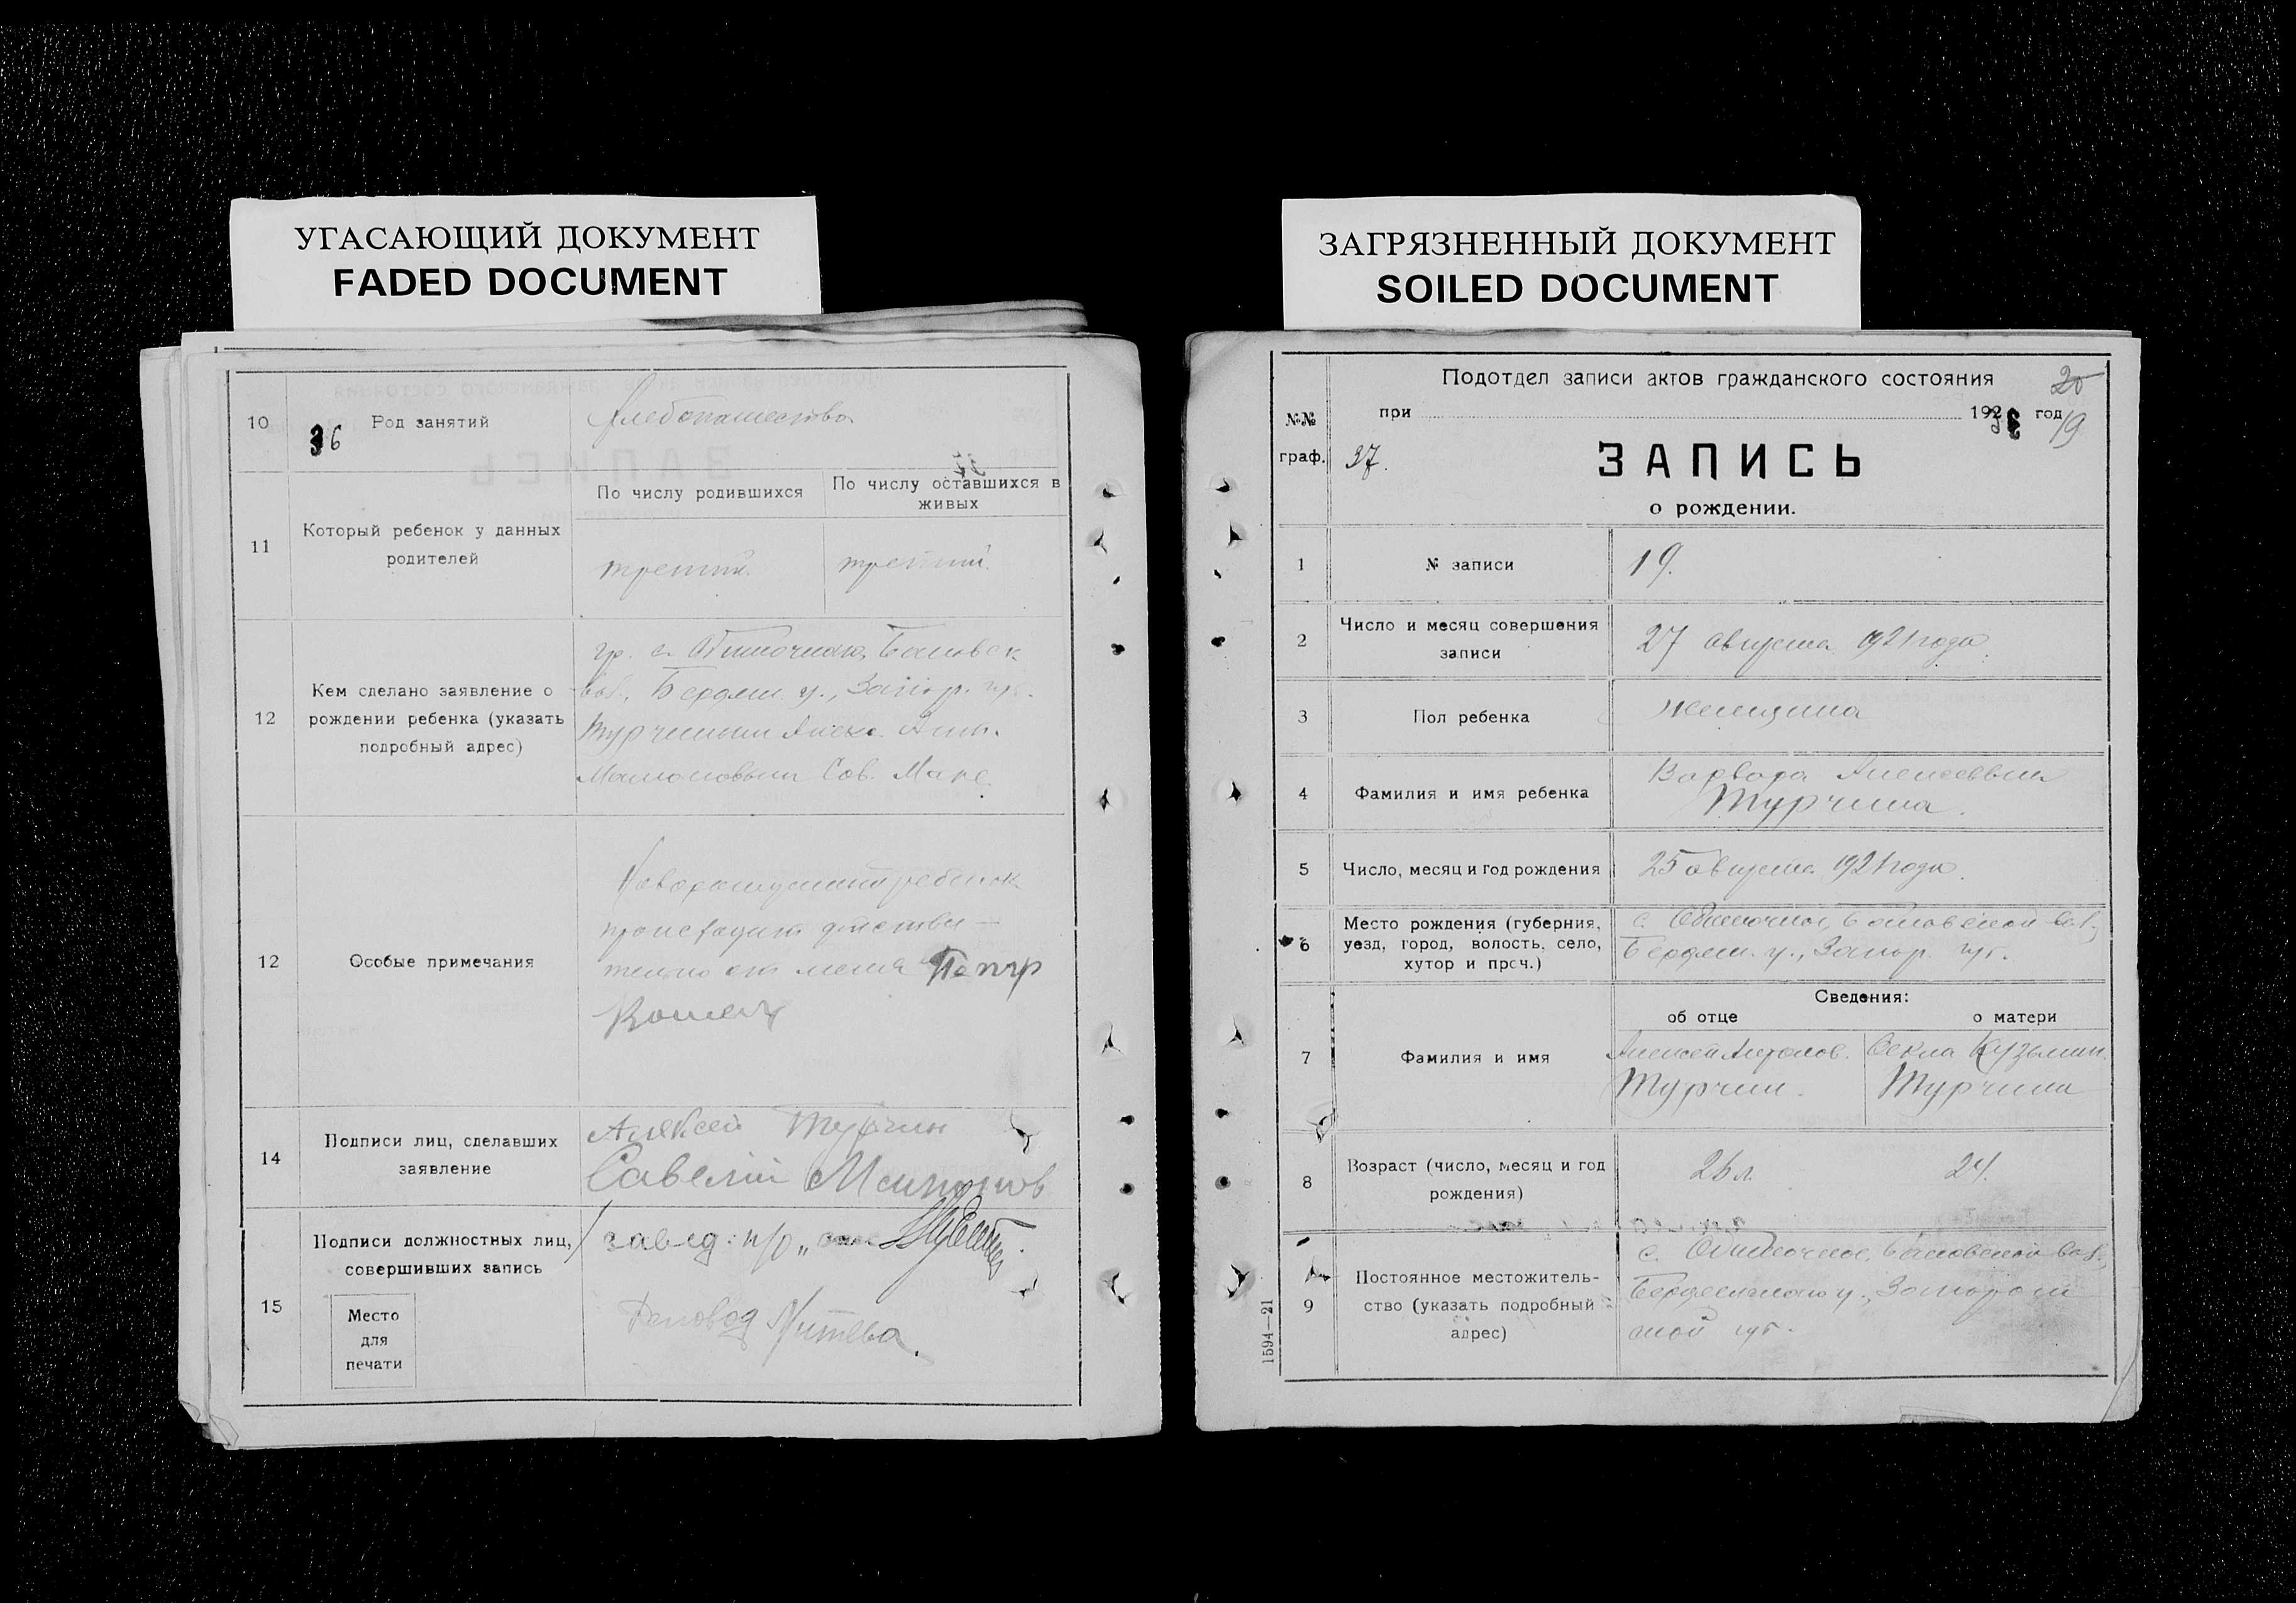 УГАСАЮЩИЙ ДОКУМЕНТ
FADED DOCUMENT
10
36
Род занятий
Хлебопашество
11
Который ребенок у данных
родителей
По числу родившихся
По числу оставшихся в
живых
третий.
третий.
12
Кем сделано заявление о
рождении ребенка (указать
подробный адрес)
гр. с.
Бердян. у., Запор. губ.
Турчиным Алекс. Ант.
Сав.
12
Особые примечания
ребенок
происходит действи-
тельно от меня
14
Подписи лиц, сделавших
заявление
Алексей Турчин
Савелий
15
Подписи должностных лиц,
совершивших запись
Место
для
печати
завед. п/о
Деловод
ЗАГРЯЗНЕННЫЙ ДОКУМЕНТ
SOILED DOCUMENT
№№
граф.
37.
Подотдел записи актов гражданского состояния
20
при 192 год
19
ЗАПИСЬ
о рождении.
1
№ записи
19.
2
Число и месяц совершения
записи
27 августа 1921 года.
3
Пол ребенка
женщина
4
Фамилия и имя ребенка
Варвара Алексеевна
Турчина.
5
Число, месяц и год рождения
25 августа 1921 года.
6
Место рождения (губерния,
уезд, город, волость, село,
хутор и проч.)
с. Обиточное, вол.,
Бердян. у., Запор. губ.
Сведения:
об отце
о матери
7
Фамилия и имя
Алексей Антонов.
Турчин.
Фекла Кузьмин.
Турчина
8
Возраст (число, месяц и год
рождения)
26 л.
24.
9
Постоянное местожитель-
ство (указать подробный
адрес)
с. Обиточное, вол.,
Бердянского у., Запорож
ской губ.
1594—21